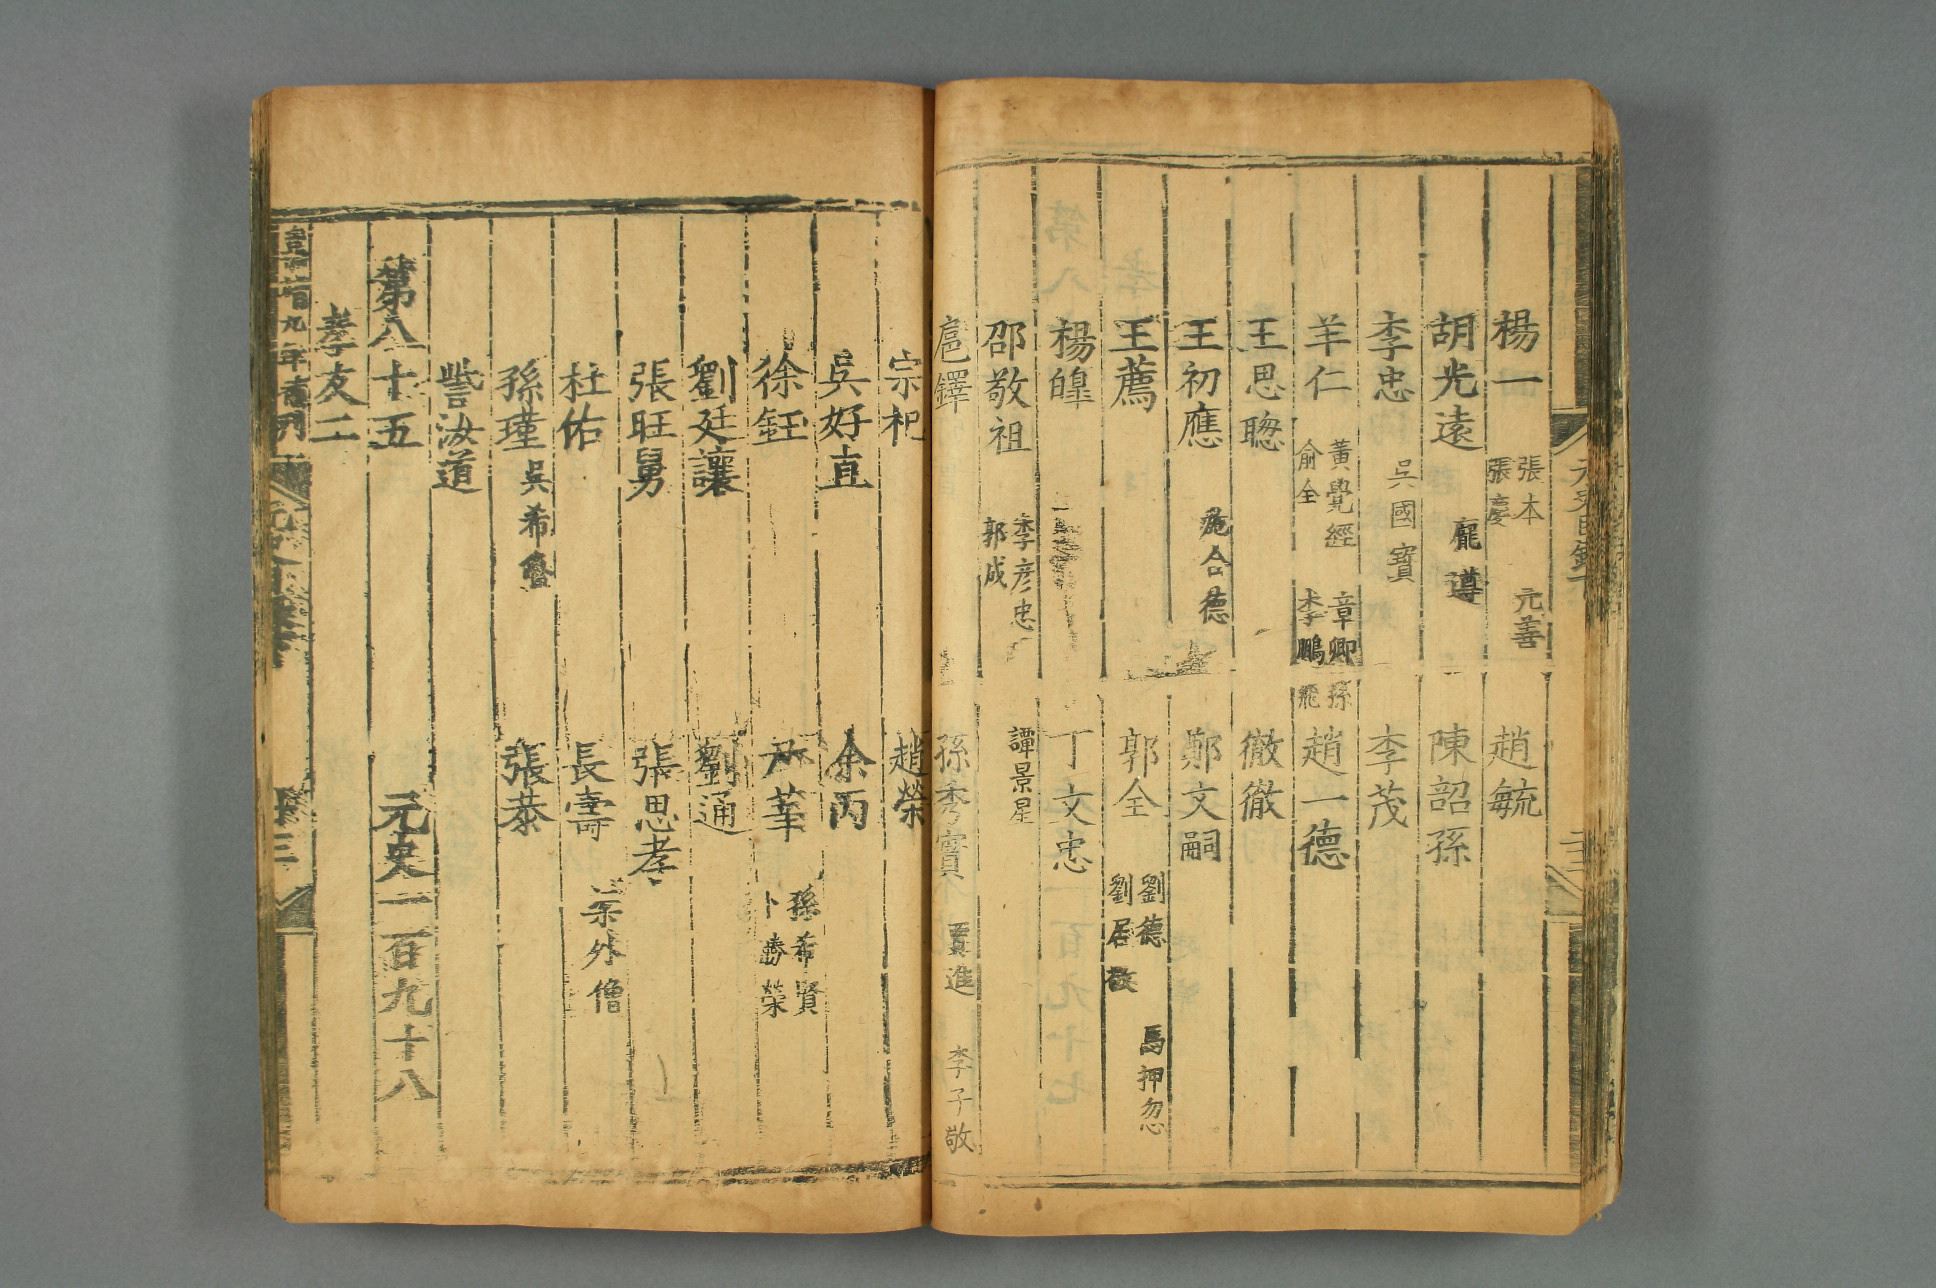 楊一 張本 張慶 元善 趙毓
胡光遠 龐遵 陳韶孫
李忠 吳國寶 李茂
羊仁 黃覺經 俞全 章卿孫 李鵬飛 趙一德
王思聰 徹徹
王初應 施合德 鄭文嗣
王薦 郭全 劉德 劉居敬 馬押忽
楊皞 丁文忠
邵敬祖 李彥忠 郭成 譚景星
扈鐸 孫秀實 賈進 李子敬
宗杞 趙榮
吳好直 余丙
徐鈺 尹莘 孫希賢 卜勝榮
劉廷讓 劉通
張旺舅 張思孝
杜佑 長壽 梁外僧
孫瑾 吳希魯 張恭
訾汝道
第八十五 元史一百九十八
孝友二
九年